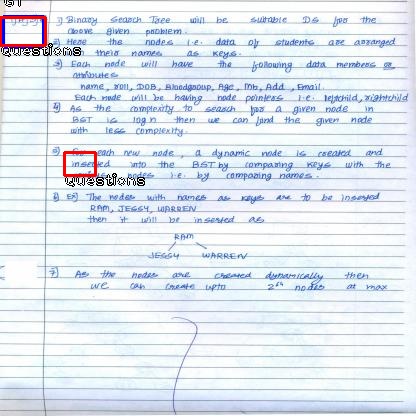 GT
Questions
1) Binary Search Tree will be suitable DS for the
above given problem.
2) Here the nodes i.e. data of students are arranged
with their names as keys.
3) Each node will have the following data members or
attributes
name, roll, DOB, Bloodgroup, Age, Mb, Add, Email.
Each node will be having node pointers i.e. leftchild, rightchild
4) As the complexity to search for a given node in
BST is log n then we can find the given node
with less complexity.
5) For each new node, a dynamic node is created and
inserted into the BST by comparing keys with the
nodes i.e. by comparing names.
Questions
6) Ex) The nodes with names as keys are to be inserted
RAM, JESSY, WARREN
then it will be inserted as
RAM
JESSY WARREN
7) As the nodes are created dynamically then
we can create upto 2^64 nodes at max